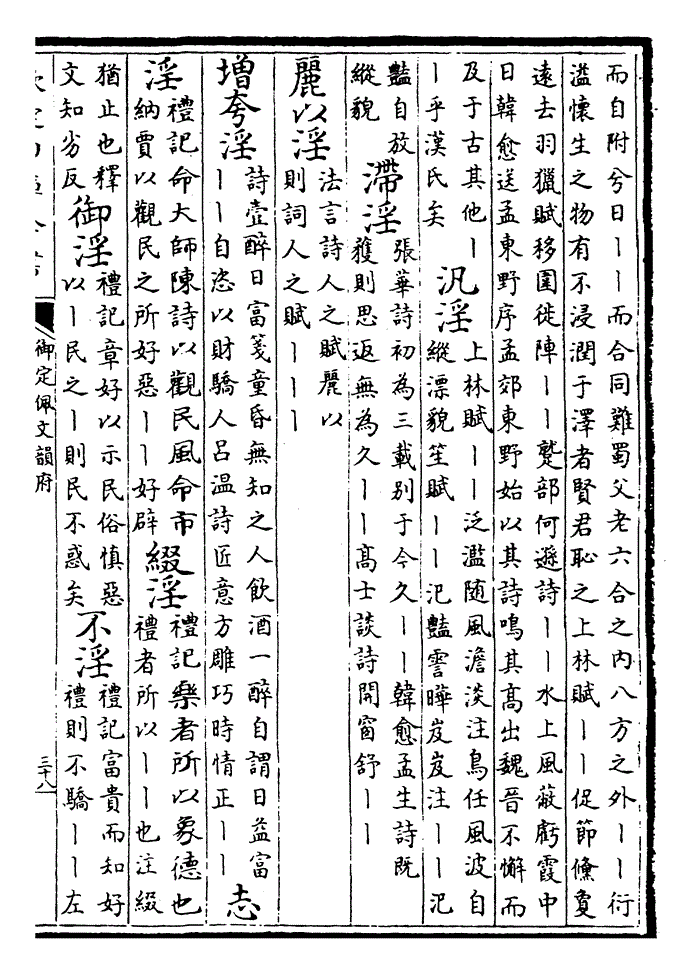 而自附兮日丨丨而合同難蜀父老六合之内八方之外丨丨衍
溢懷生之物有不浸潤于澤者賢君恥之上林賦丨丨促節儵夐
遠去羽獵賦移圍徙陣丨丨蹵部何遜詩丨丨水上風蔽虧霞中
日韓愈送孟東野序孟郊東野始以其詩鳴其髙出魏晉不懈而
及于古其他丨
丨乎漢氏矣
汎淫
上林賦丨丨泛濫随風澹淡注鳥任風波自
縱漂貌笙賦丨丨氾豔霅曄岌岌注丨丨氾
豔自放
縱貌
滯淫
張華詩初為三載别于今久丨丨韓愈孟生詩既
獲則思返無為久丨丨髙士談詩開窗舒丨丨
麗以淫
法言詩人之賦麗以
則詞人之賦丨丨丨
增夸淫
詩壹醉日富箋童昏無知之人飲酒一醉自謂日益富
丨丨自恣以財驕人吕温詩匠意方雕巧時情正丨丨
志
淫
禮記命大師陳詩以觀民風命市
納賈以觀民之所好惡丨丨好辟
綴淫
禮記樂者所以象德也
禮者所以丨丨也注綴
猶止也釋
文知劣反
御淫
禮記章好以示民俗慎惡
以丨民之丨則民不惑矣
不淫
禮記富貴而知好
禮則不驕丨丨左
欽定四庫全書
御定佩文韻府
三十八